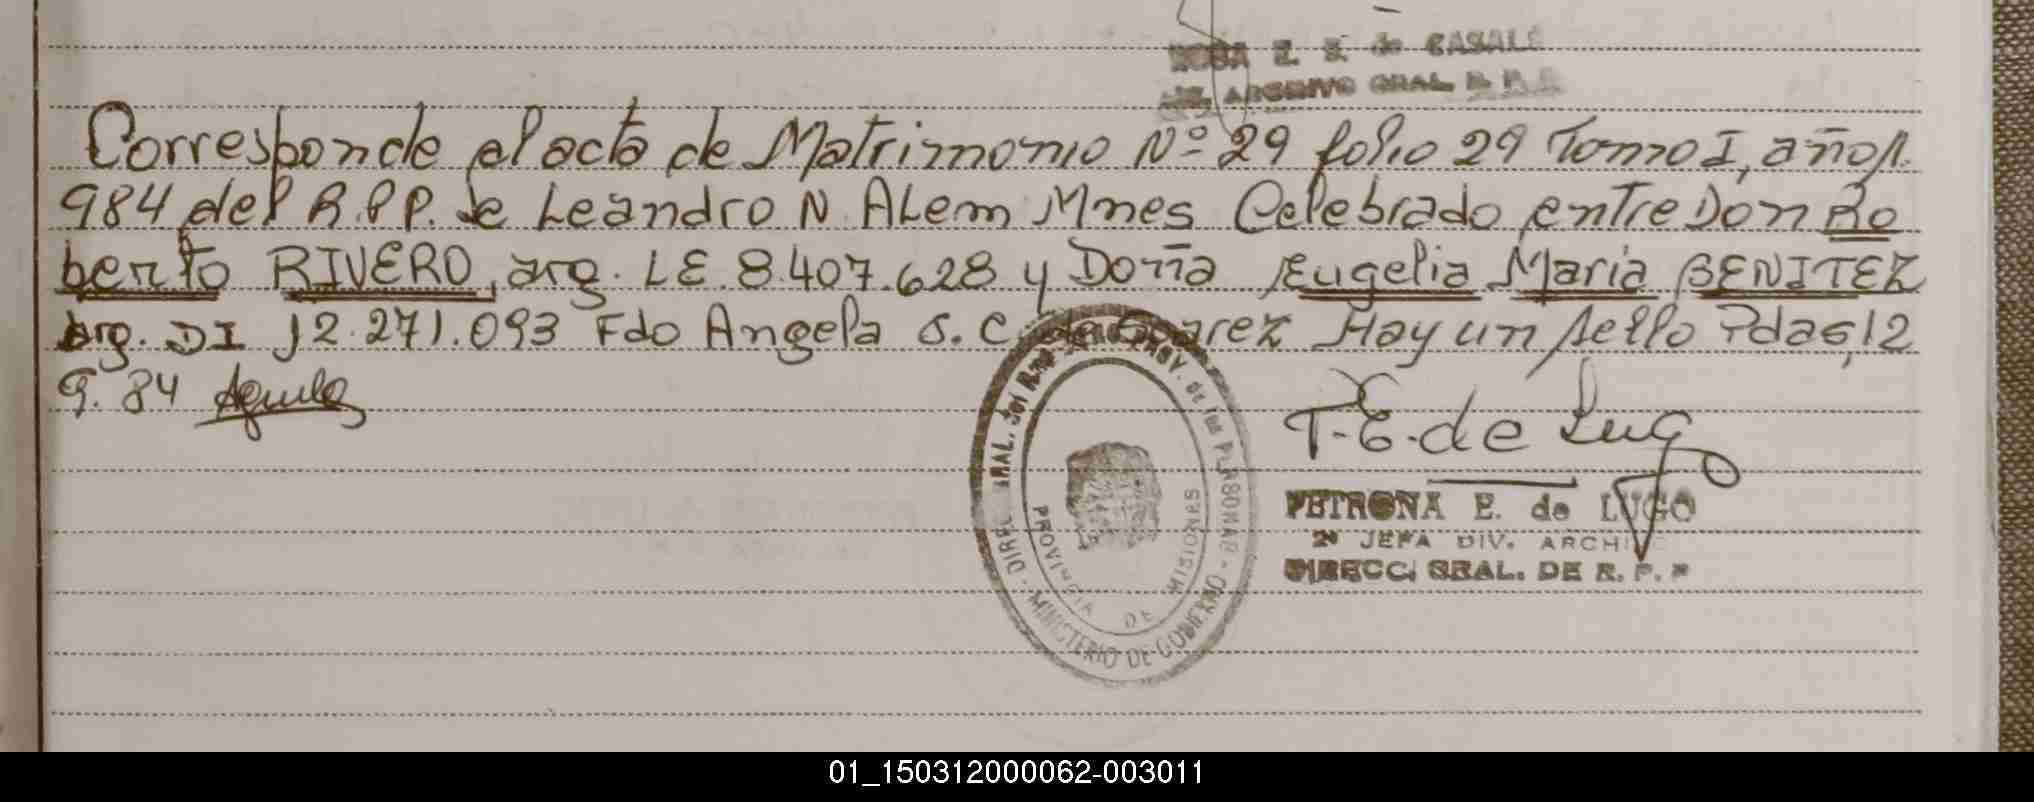 ROSA E. S. de CASALE
ARCHIVO GRAL. R. P. P.
Corresponde al acta de Matrimonio Nº 29 folio 29 Tomo I, año 1.
984 del R.P.P. de Leandro N. ALem Mnes Celebrado entre Don Ro
berto RIVERO, arg. LE. 8.407.628 y Doña Eugelia Maria BENITEZ
arg. DI 12.271.093 Fdo Angela S. C. de Suarez Hay un sello Pdas, 12
9. 84
T. E. de Lugo
DIREC. GRAL. del REG. PROV. de las PERSONAS - MINISTERIO DE GOBIERNO
PROVINCIA DE MISIONES
PETRONA E. de LUGO
2ª JEFA DIV. ARCHIVO
DIRECC. GRAL. DE R. P. P
01_150312000062-003011